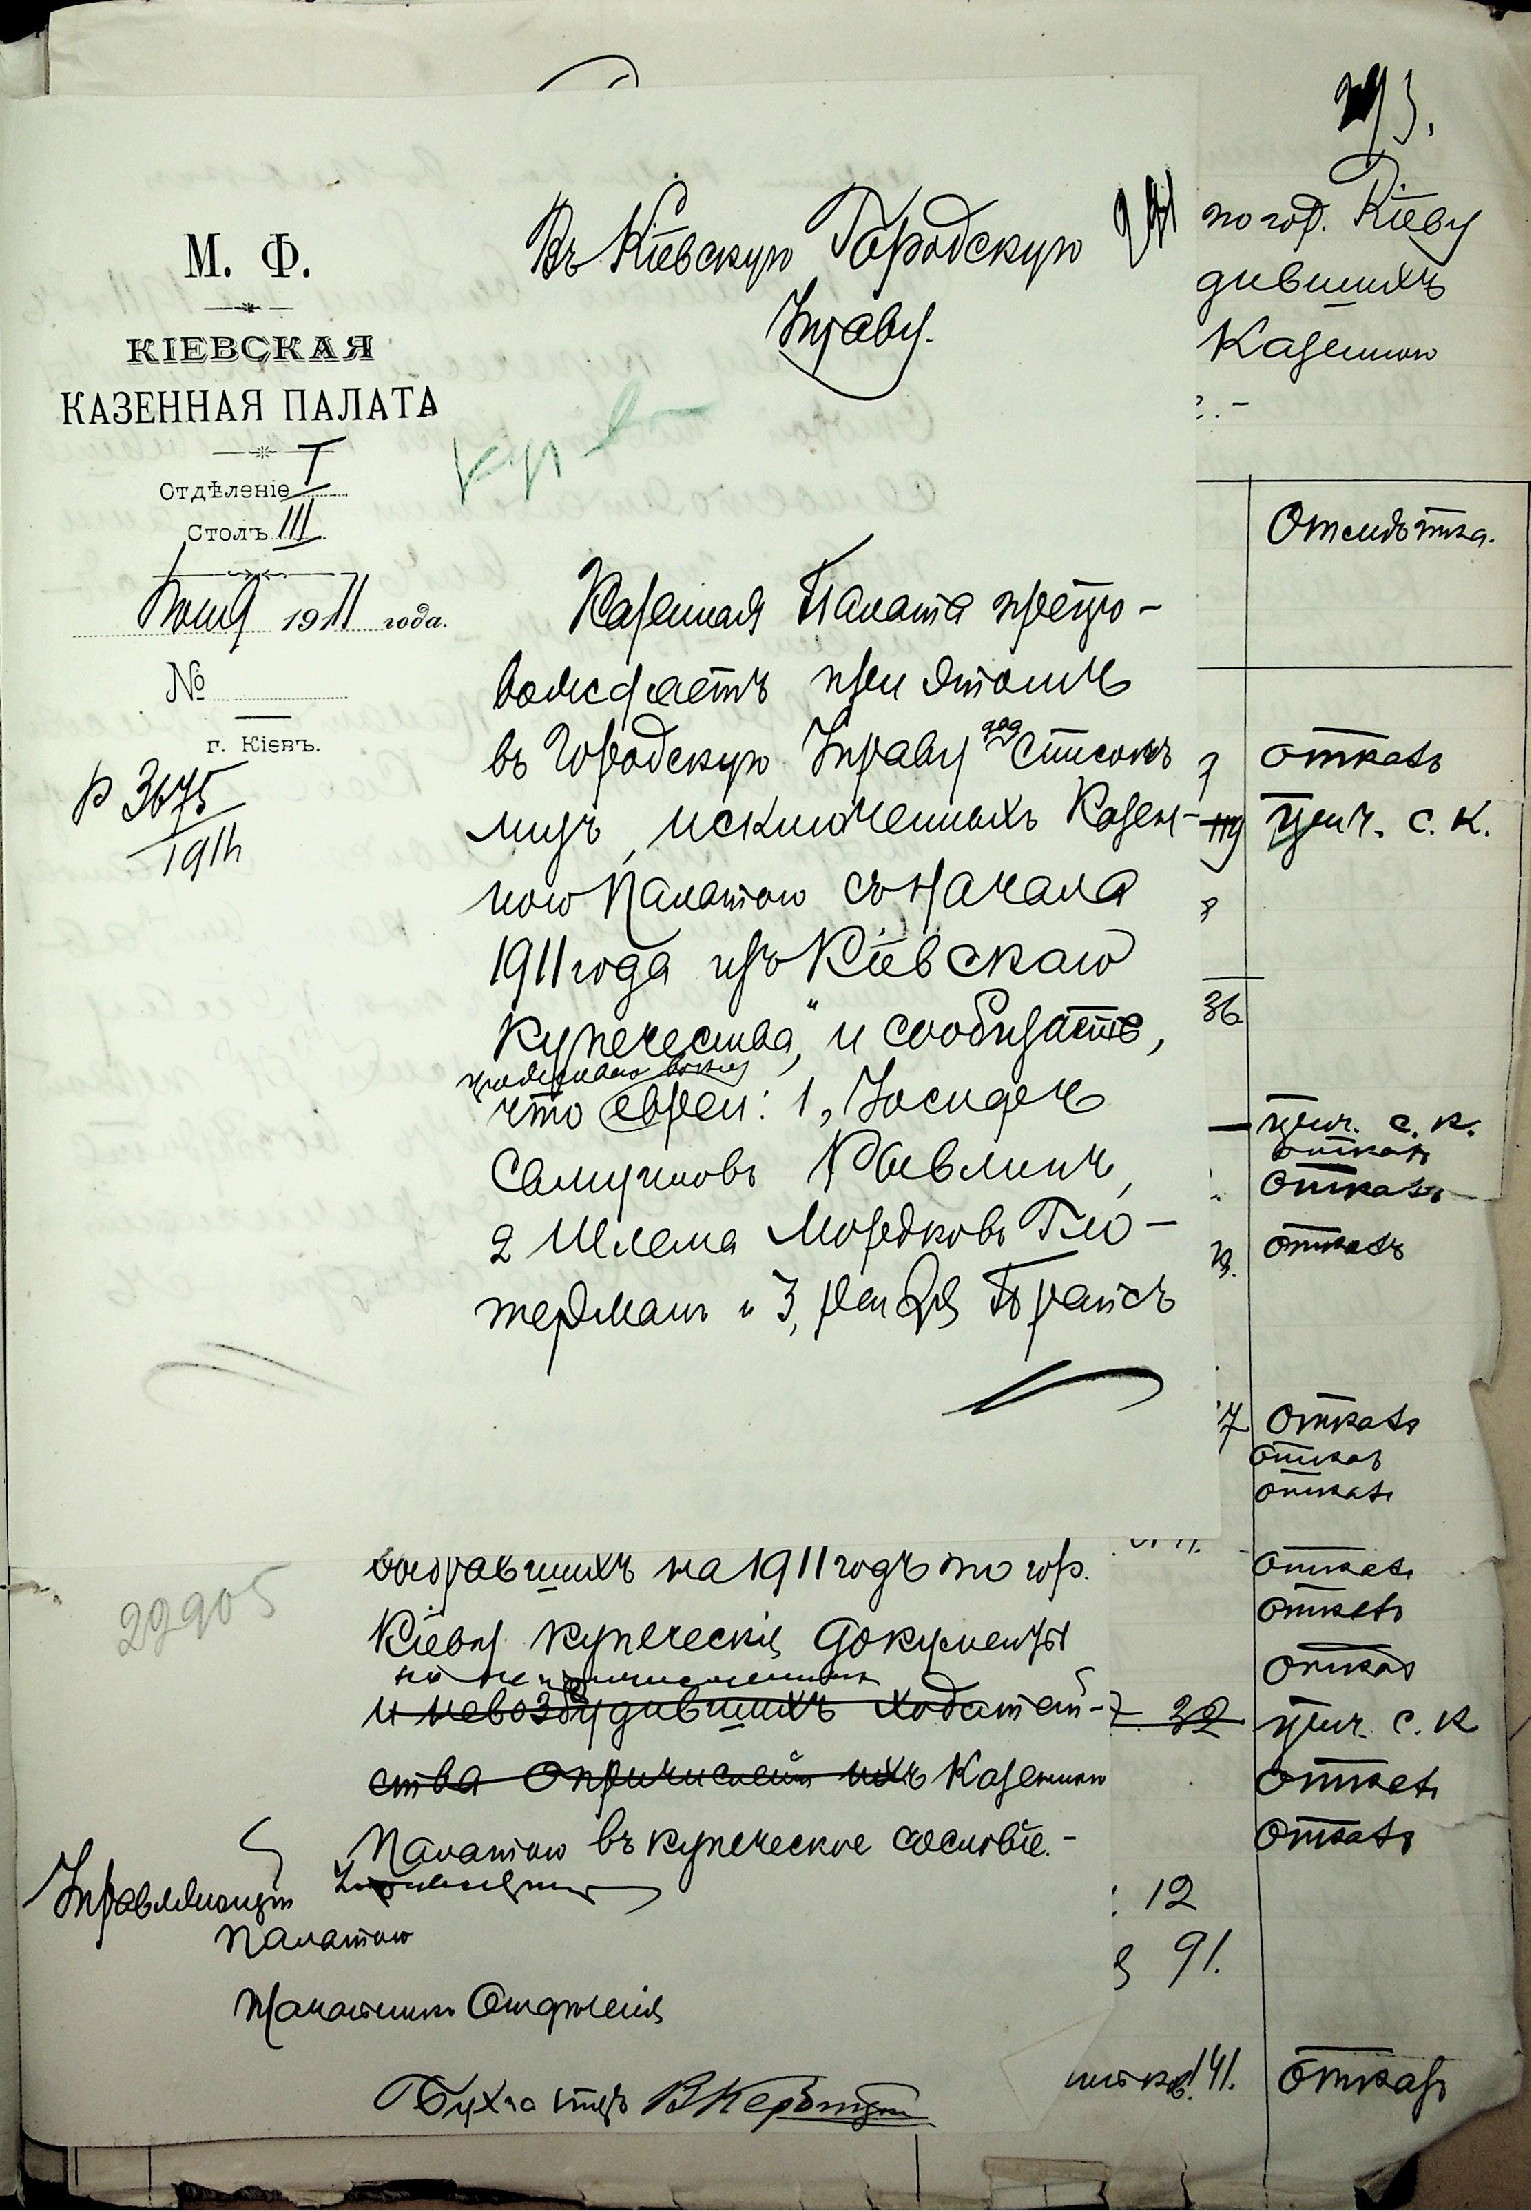 М. Ф.
КІЕВСКАЯ
КАЗЕННАЯ ПАЛАТА
Отдѣленіе I
Столъ III
1911 года.
№
г. Кіевъ.
3675
1911
Въ Кіевскую Городскую
Управу.
Казенная Палата препро-
вождаетъ при этомъ
въ Городскую Управу Списокъ
лицъ, исключенныхъ Казен-
ною Палатою съ начала
1911 года изъ Кіевскаго
купечества," и сообщаетъ,
что евреи: 1, Іосифъ
Самуиловъ Равлинъ,
2 Шлема Мордковъ Глю-
терманъ и 3, Прайсъ
выбравшихъ на 1911 годъ по гор.
Кіеву купеческія документы
и невозбудившихъ ходатай-
ства о причисленіи ихъ Казенною
Палатою въ купеческое сословіе.-
Управляющій
Палатою
Начальникъ Отдѣленія
Бухгалтеръ
22905
293.
по гор. Кіеву
дившихъ
Казенною
г.-
Отмѣтка.
отказъ
прич. С. К.
36
прич. С. К.
отказъ
отказъ
отказъ
7 отказъ
отказъ
отказъ
отказъ
отказъ
отказъ
32 прич. С. К
отказъ
отказъ
12
91.
141. отказъ